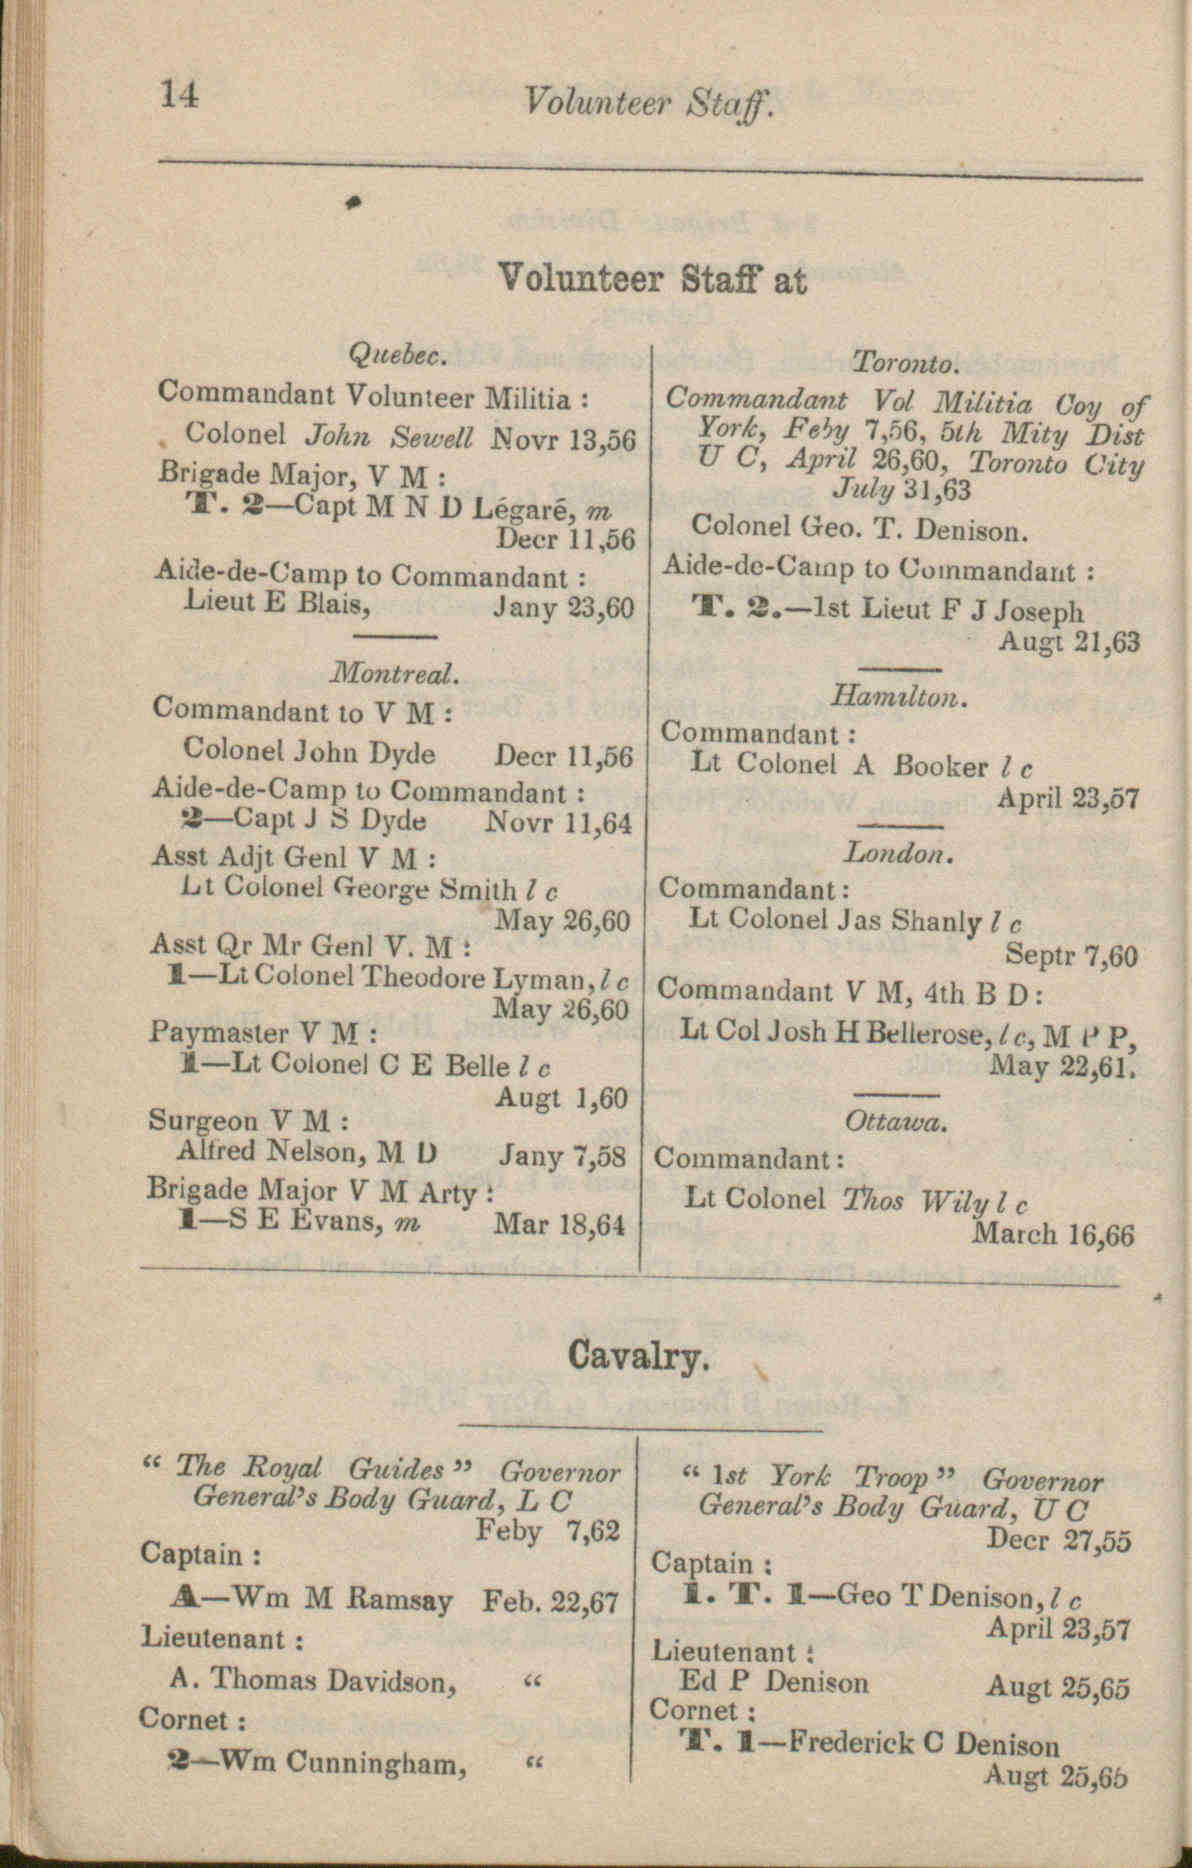 14
Volunteer Staff.
Volunteer Staff at
Quebec.
Commandant Volunteer Militia :
Colonel John Sewell Novr 13,56
Brigade Major, V M :
T. 2—Capt M N D Légaré, m
Decr 11,56
Aide-de-Camp to Commandant :
Lieut E Blais, Jany 23,60
Montreal.
Commandant to V M :
Colonel John Dyde Decr 11,56
Aide-de-Camp to Commandant :
2—Capt J S Dyde Novr 11,64
Asst Adjt Genl V M :
Lt Colonel George Smith l c
May 26,60
Asst Qr Mr Genl V. M :
1—Lt Colonel Theodore Lyman, l c
May 26,60
Paymaster V M :
1—Lt Colonel C E Belle l c
Augt 1,60
Surgeon V M :
Alfred Nelson, M D Jany 7,58
Brigade Major V M Arty :
1—S E Evans, m Mar 18,64
Toronto.
Commandant Vol Militia Coy of
York, Feby 7,56, 5th Mity Dist
U C, April 26,60, Toronto City
July 31,63
Colonel Geo. T. Denison.
Aide-de-Camp to Commandant :
T. 2.—1st Lieut F J Joseph
Augt 21,63
Hamilton.
Commandant :
Lt Colonel A Booker l c
April 23,57
London.
Commandant :
Lt Colonel Jas Shanly l c
Septr 7,60
Commandant V M, 4th B D :
Lt Col Josh H Bellerose, l c, M P P,
May 22,61.
Ottawa.
Commandant :
Lt Colonel Thos Wily l c
March 16,66
Cavalry.
“ The Royal Guides ” Governor
General's Body Guard, L C
Feby 7,62
Captain :
A—Wm M Ramsay Feb. 22,67
Lieutenant :
A. Thomas Davidson, “
Cornet :
2—Wm Cunningham, “
“ 1st York Troop ” Governor
General's Body Guard, U C
Decr 27,55
Captain :
1. T. 1—Geo T Denison, l c
April 23,57
Lieutenant :
Ed P Denison Augt 25,65
Cornet :
T. 1—Frederick C Denison
Augt 25,65